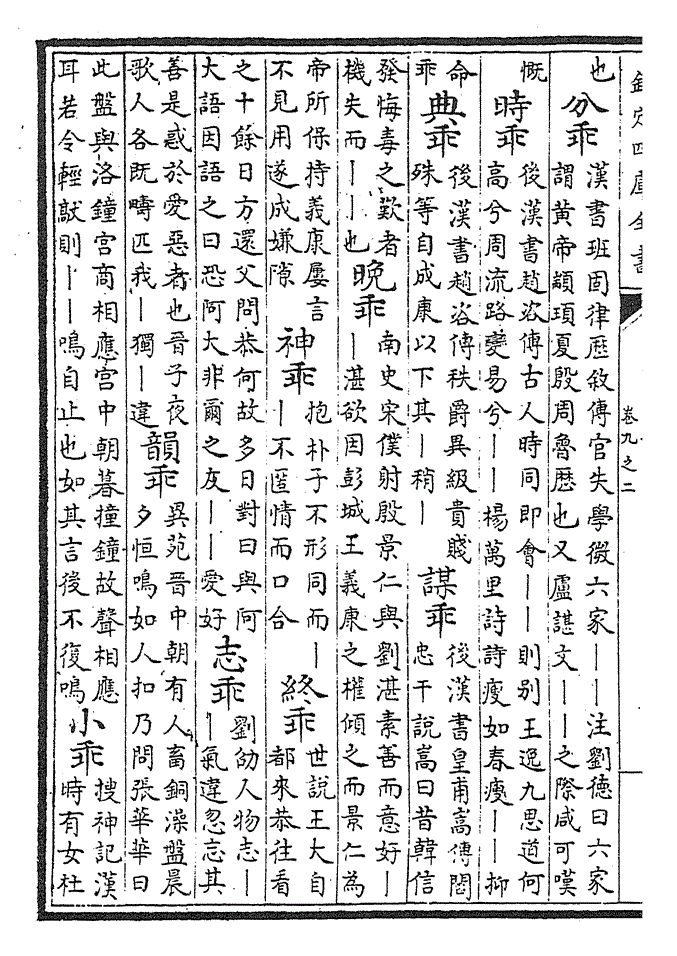 欽定四庫全書 卷九之二
也 分乖 漢書班固律歷敘傳官失學微六家丨丨注劉徳曰六家
謂黄帝顓頊夏殷周魯歴也又盧諶文丨丨之際咸可嘆
慨
時乖 後漢書趙咨傳古人時同即會丨丨則别王逸九思道何
高兮周流路變易兮丨丨楊萬里詩詩瘦如春瘦丨丨抑
命
乖
典乖 後漢書趙咨傳秩爵異級貴賤
殊等自成康以下其丨稍丨
謀乖 後漢書皇甫嵩傳閻
忠干説嵩曰昔韓信
發悔毒之歎者
機失而丨丨也
晚乖 南史宋僕射殷景仁與劉湛素善而意好丨
丨湛欲因彭城王義康之權傾之而景仁為
帝所保持義康屢言
不見用遂成嫌隙
神乖 抱朴子不形同而丨
丨不匿情而口合
終乖 世説王大自
都來恭往看
之十餘日方還父問恭何故多日對曰與阿
大語因語之曰恐阿大非爾之友丨丨愛好
志乖 劉劭人物志丨
丨氣違忽忘其
善是惑於愛惡者也晉子夜
歌人各既疇匹我丨獨丨違
韻乖 異苑晉中朝有人畜銅澡盤晨
夕恒鳴如人扣乃問張華華曰
此盤與洛鐘宮商相應宫中朝暮撞鐘故聲相應
耳若令輕則丨丨鳴自止也如其言後不復鳴
小乖 搜神記漢
時有女杜